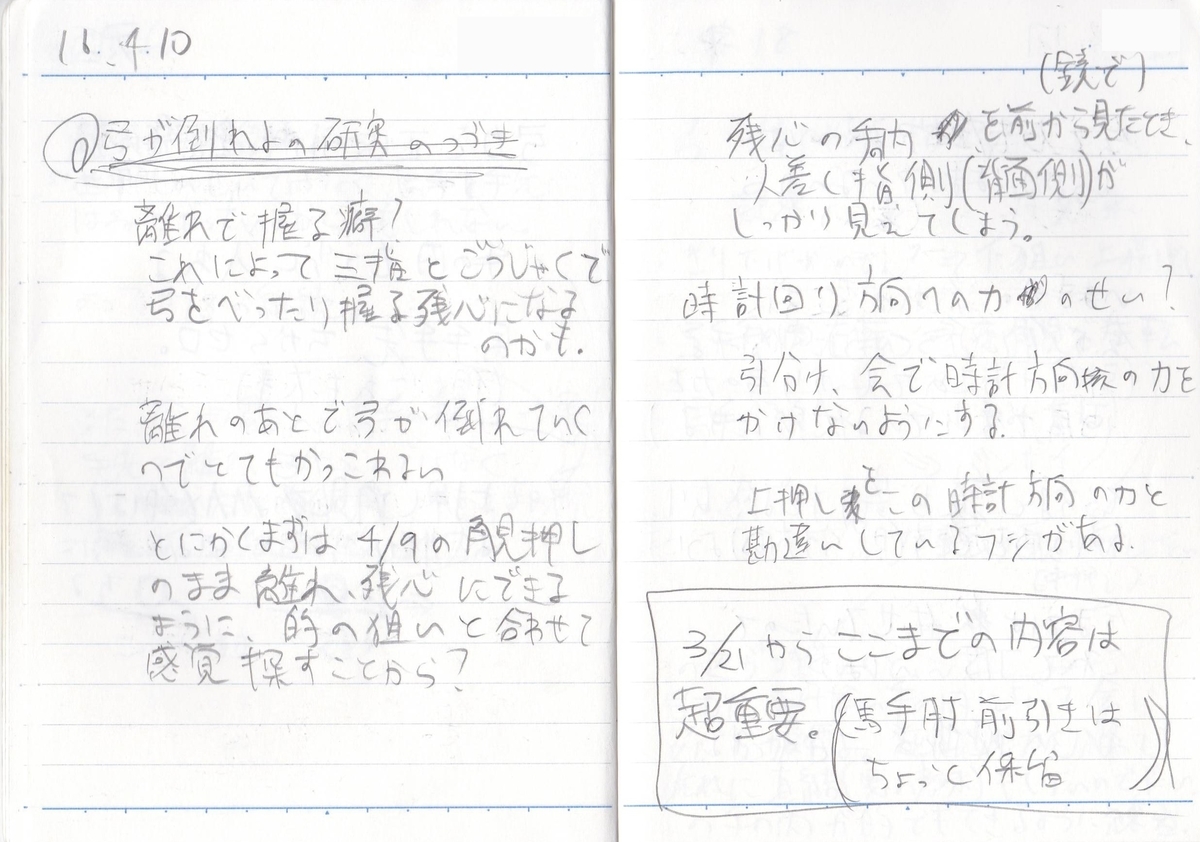 16.4.10
弓が倒れよの研究のつづき
離れで握る癖?
これによって三指とごうじゃくで
弓をべったり握る残心になる
のかも。
離れのあとで弓が倒れていく
のでとてもかっこわるい
とにかくまずは4/9の角見押し
のまま離れ、残心にできる
ように、的の狙いと合わせて
感覚探すことから?
(鏡で)
残心の手の内を前から見たとき、
人差し指側(背面側)が
しっかり見えてしまう。
時計回り方向への力のせい?
引分け、会で時計方向の力を
かけないようにする。
上押しをこの時計方向の力と
勘違いしているフシがある。
3/21からここまでの内容は
超重要。(馬手肘前引きは
ちょっと保留)